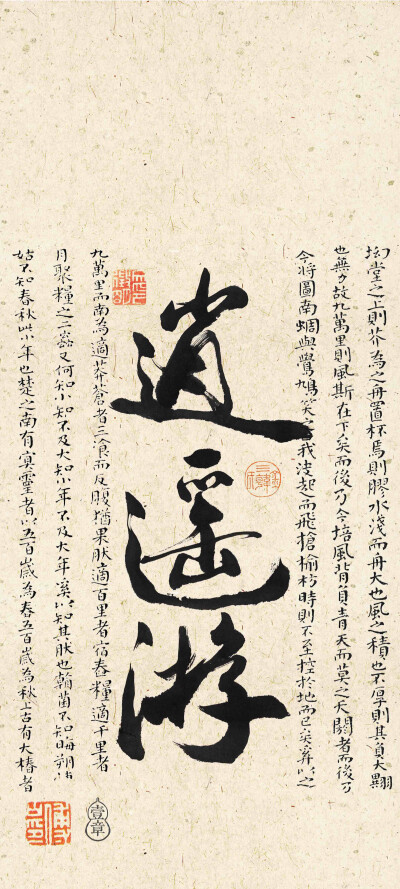 坳堂之上則芥為之舟置杯焉則膠水淺而舟大也風之積也不厚則其負大翼
也無力故九萬里則風斯在下矣而後乃今培風背負青天而莫之夭閼者而後乃
今將圖南蜩與鷽鳩笑之曰我決起而飛搶榆枋時則不至控於地而已矣奚以之
逍遥游
九萬里而南為適莽蒼者三飡而反腹猶果然適百里者宿舂糧適千里者
月聚糧之二蟲又何知小知不及大知小年不及大年奚以知其然也朝菌不知晦朔
蛄不知春秋此小年也楚之南有冥靈者以五百歲為春五百歲為秋上古有大椿者
壹章